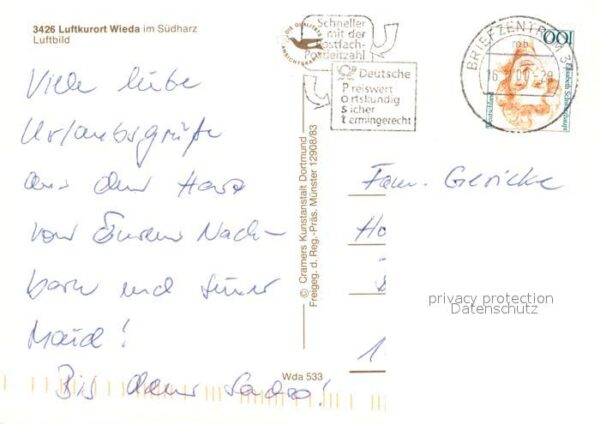 3426 Luftkurort Wieda im Südharz
Luftbild
Viele liebe
Urlaubsgrüße
aus dem Harz
von Euren Nach-
barn und
Bis dann Sandra!
© Cramers Kunstanstalt Dortmund
Freigeg. d. Reg.-Präs. Münster 12908/83
Wda 533
DIE QUALITÄTS
ANSICHTSKARTE
Schneller
mit der
Postfach-
leitzahl
Deutsche
Preiswert
Ortskundig
Sicher
termingerecht
BRIEFZENTRUM 3
mb
100
Fam. Gericke
Ho
1
privacy protection
Datenschutz